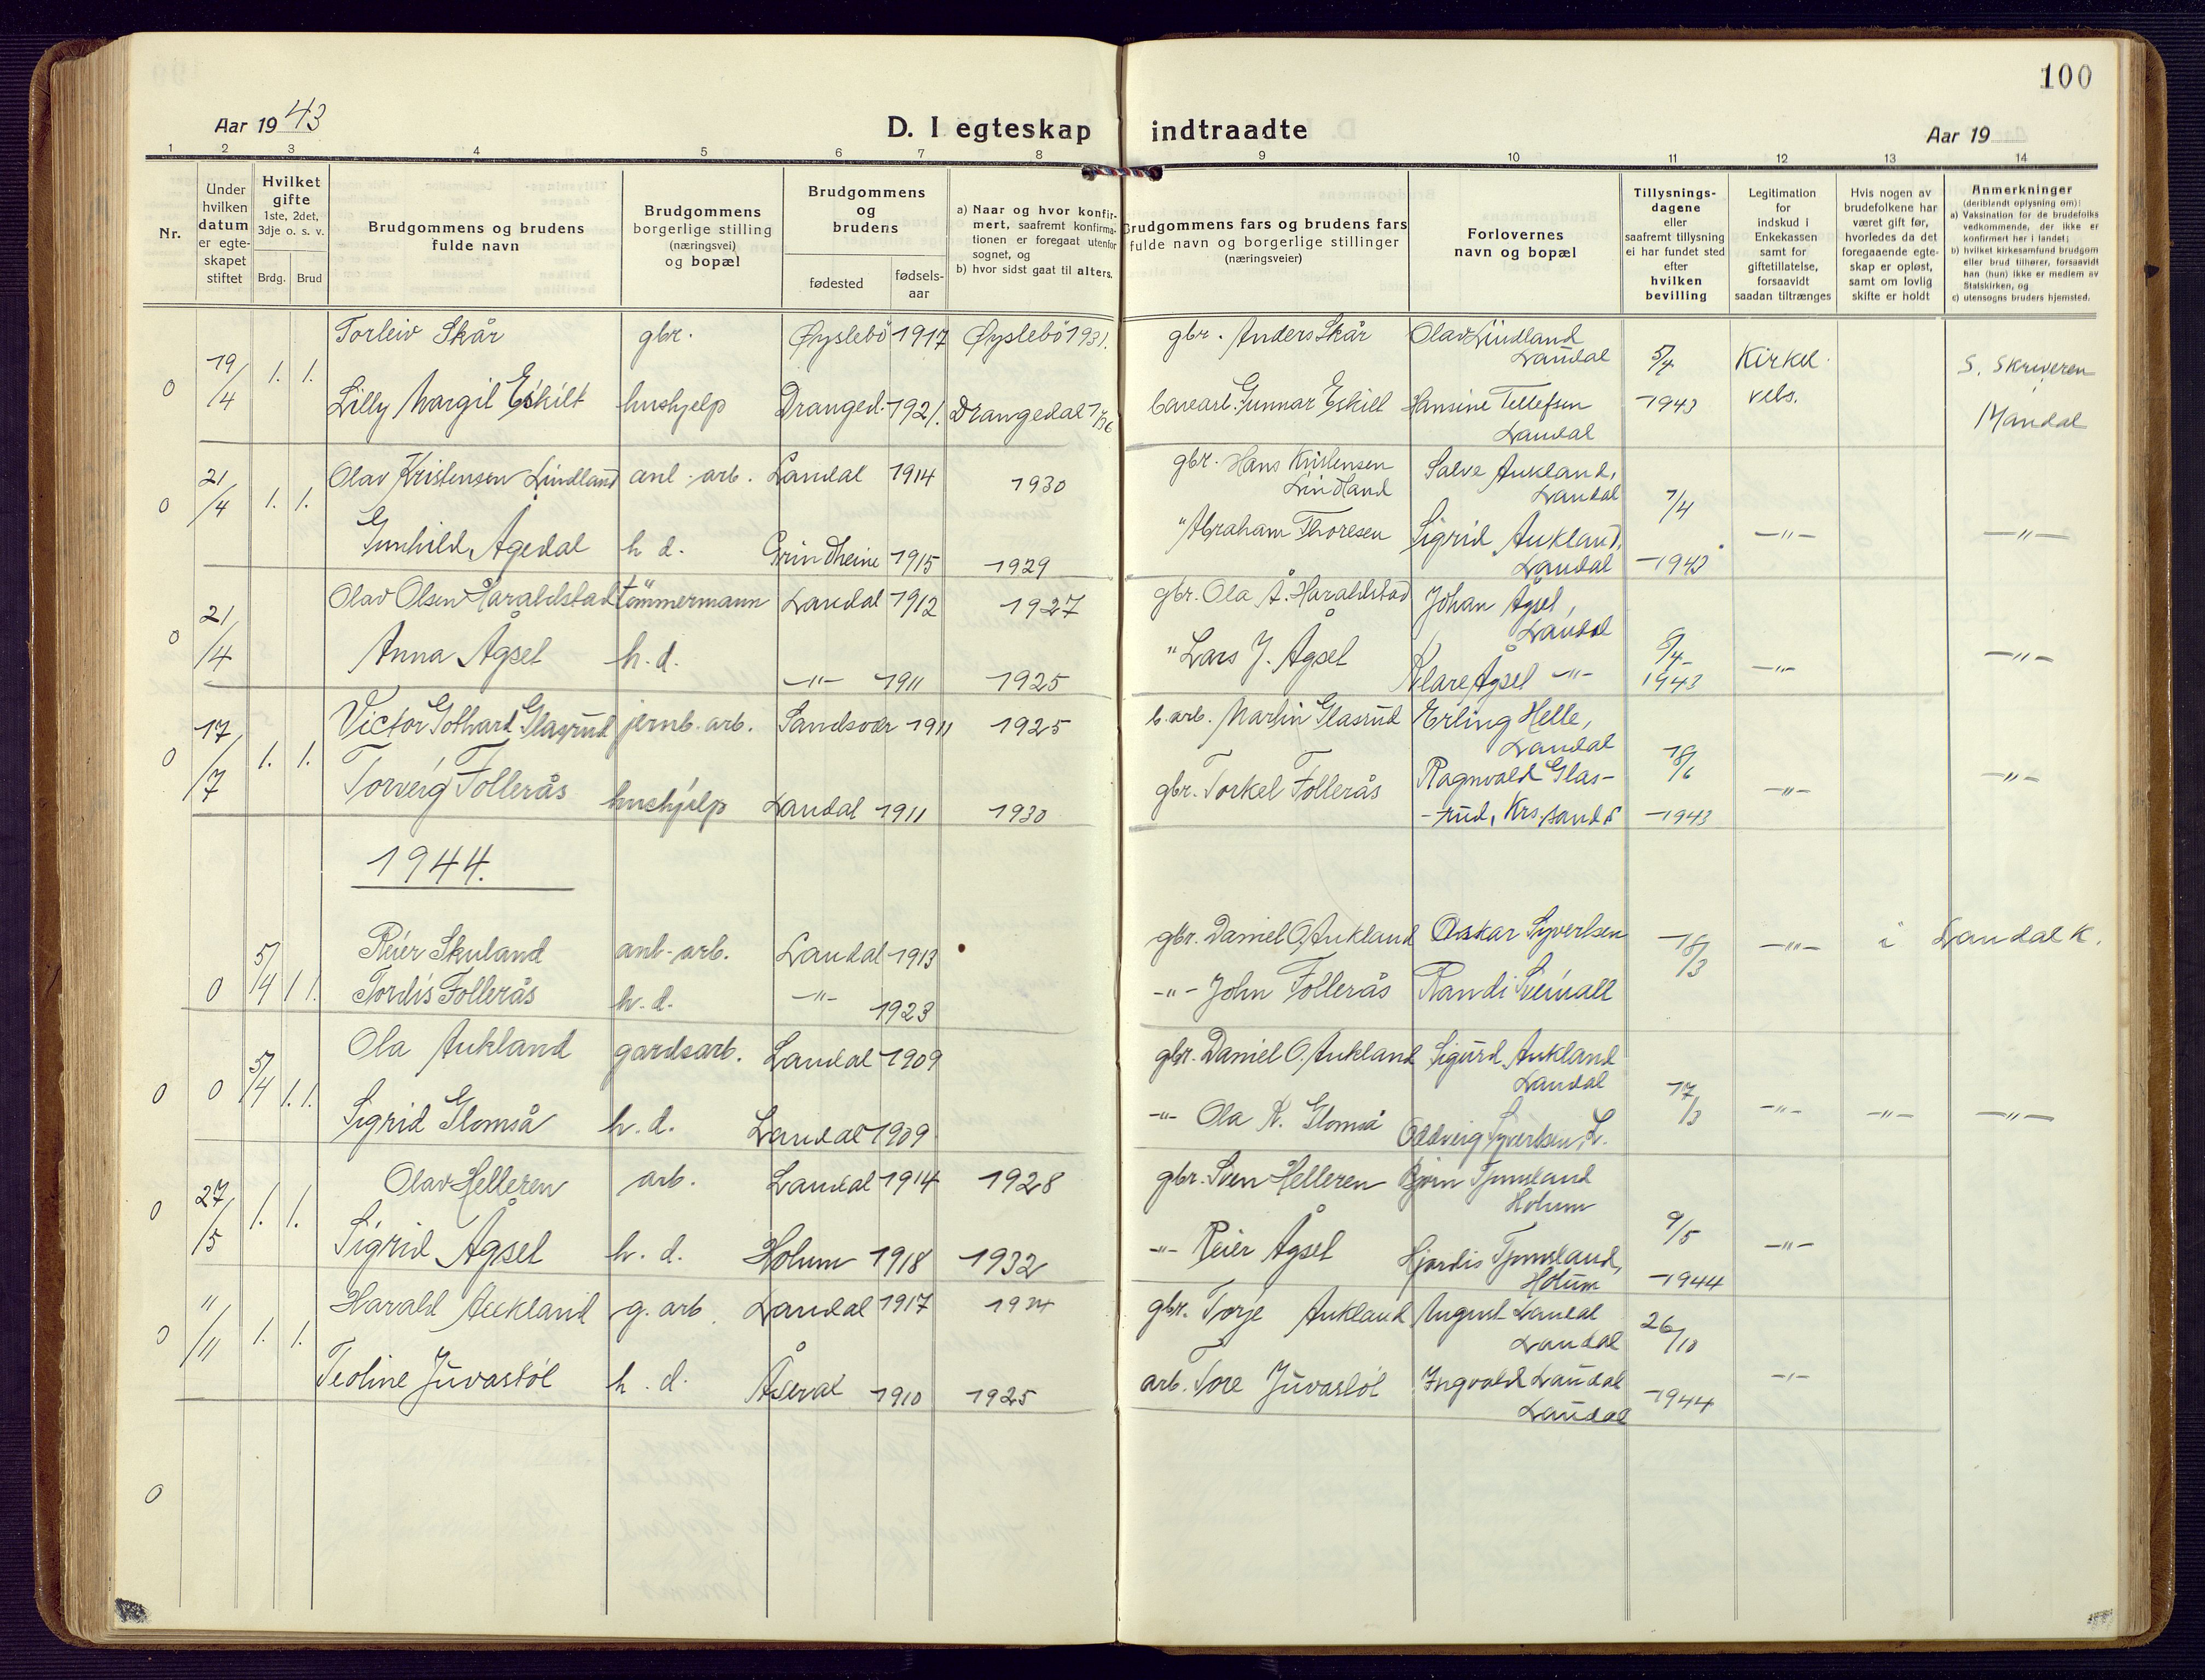 100
Aar 19 43
D. I egteskap indtraadte
Aar 19
1 2 3 4 5 6 7 8 9 10 11 12 13 14
Nr.
Under hvilken datum er egte-skapet stiftet
Hvilket gifte
1ste, 2det, 3dje o. s. v.
Brdg. Brud
Brudgommens og brudens fulde navn
Brudgommens borgerlige stilling (næringsvei) og bopæl
Brudgommens og brudens
fødested
fødsels-aar
a) Naar og hvor konfir-mert, saafremt konfirma-tionen er foregaat utenfor sognet, og
b) hvor sidst gaat til alters.
Brudgommens fars og brudens fars fulde navn og borgerlige stillinger (næringsveier)
Forlovernes navn og bopæl
Tillysnings-dagene eller saafremt tillysning ei har fundet sted efter hvilken bevilling
Legitimation for indskud i Enkekassen samt for giftetillatelse, forsaavidt saadan tiltrænges
Hvis nogen av brudefolkene har været gift før, hvorledes da det foregaaende egte-skap er opløst, samt om lovlig skifte er holdt
Anmerkninger
(deriblandt oplysning om):
a) Vaksination for de brudefolks vedkommende, der ikke er konfirmert her i landet;
b) hvilket kirkesamfund brudgom eller brud tilhører, forsaavidt han (hun) ikke er medlem av Statskirken, og
c) utensogns bruders hjemsted.
0 19/4 1. 1. Torleiv Skår gbr. Øyslebö 1917 Øyslebö 1931. gbr. Anders Skår Olav Lindland Laudal 5/4 Kirkel. S. Skriveren i
Lilly Margit Eskilt hushjelp Dranged. 1921. Drangedal Gunnar Eskilt Hansine Tellefsen Laudal 1943 vels. Mandal
0 21/4 1. 1. Olav Kristensen Lindland anl-arb. Laudal 1914 1930 gbr. Hans Kristensen Lindland Salve Aukland, Laudal 7/4
Gunhild Ågedal h d. Grindheim 1915 1929 " Abraham Thoresen Sigrid Aukland, Laudal -1943 -"- -"-
0 21/4 Olav Olsen Haraldstad tömmermann Laudal 1912 1927 gbr. Ola Å. Haraldstad Johan Ågsel, Laudal 8/4
Anna Ågsel h.d. -"- 1911 1925 " Lars J. Ågsel Klare Ågsel -"- 1943 -"- -"-
0 17/7 1. 1. Victor Gothard Glasrud jernb. arb. Sandsvær 1911 1925 b. arb. Martin Glasrud Erling Helle, Laudal 18/6
Torveig Follerås hushjelp Laudal 1911 1930 gbr. Torkel Follerås Ragnvald Glas-rud, Krs.sand S -1943 -"- -"-
1944.
0 5/4 1 1. Reier Skuland anl-arb. Laudal 1913 gbr. Daniel O. Aukland Oskar Syvertsen 18/3 -"- i Laudal K.
Tordis Follerås h.d. -"- 1923 -"- John Follerås Randi Sveinall
0 0 5/4 1. 1. Ola Aukland gardsarb. Laudal 1909 gbr. Daniel O. Aukland Sigurd Aukland Laudal 17/3
Sigrid Glomså h.d. Laudal 1909 -"- Ola R. Glomså Oddveig Syvertsen, L. -"- -"- -"-
0 27/5 1. 1. Olav Helleren arb. Laudal 1914 1928 gbr. Sven Helleren Bjørn Tjomsland Holum 9/5
Sigrid Ågsel h. d. Holum 1918 1932 -"- Reier Ågsel Hjørdis Tjomsland, Holum -1944 -"-
0 11/11 1. 1. Harald Aukland g. arb. Laudal 1917 gbr. Torje Aukland August Laudal Laudal 26/10
Teoline Juvastøl h. d. Åseral 1910 1925 arb. Tore Juvastøl Ingvald Laudal Laudal -1944 -"-
0